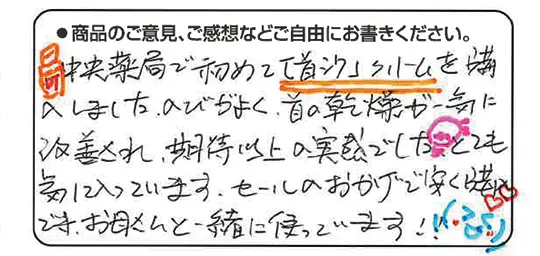 ●商品のご意見、ご感想などご自由にお書きください。
中央薬局で初めて「首汐」クリームを購
入しました。のびがよく、首の乾燥が一気に
改善され、期待以上の実感でした。とても
気に入っています。セールのおかげで安く購入
でき、お母さんと一緒に使っています!!